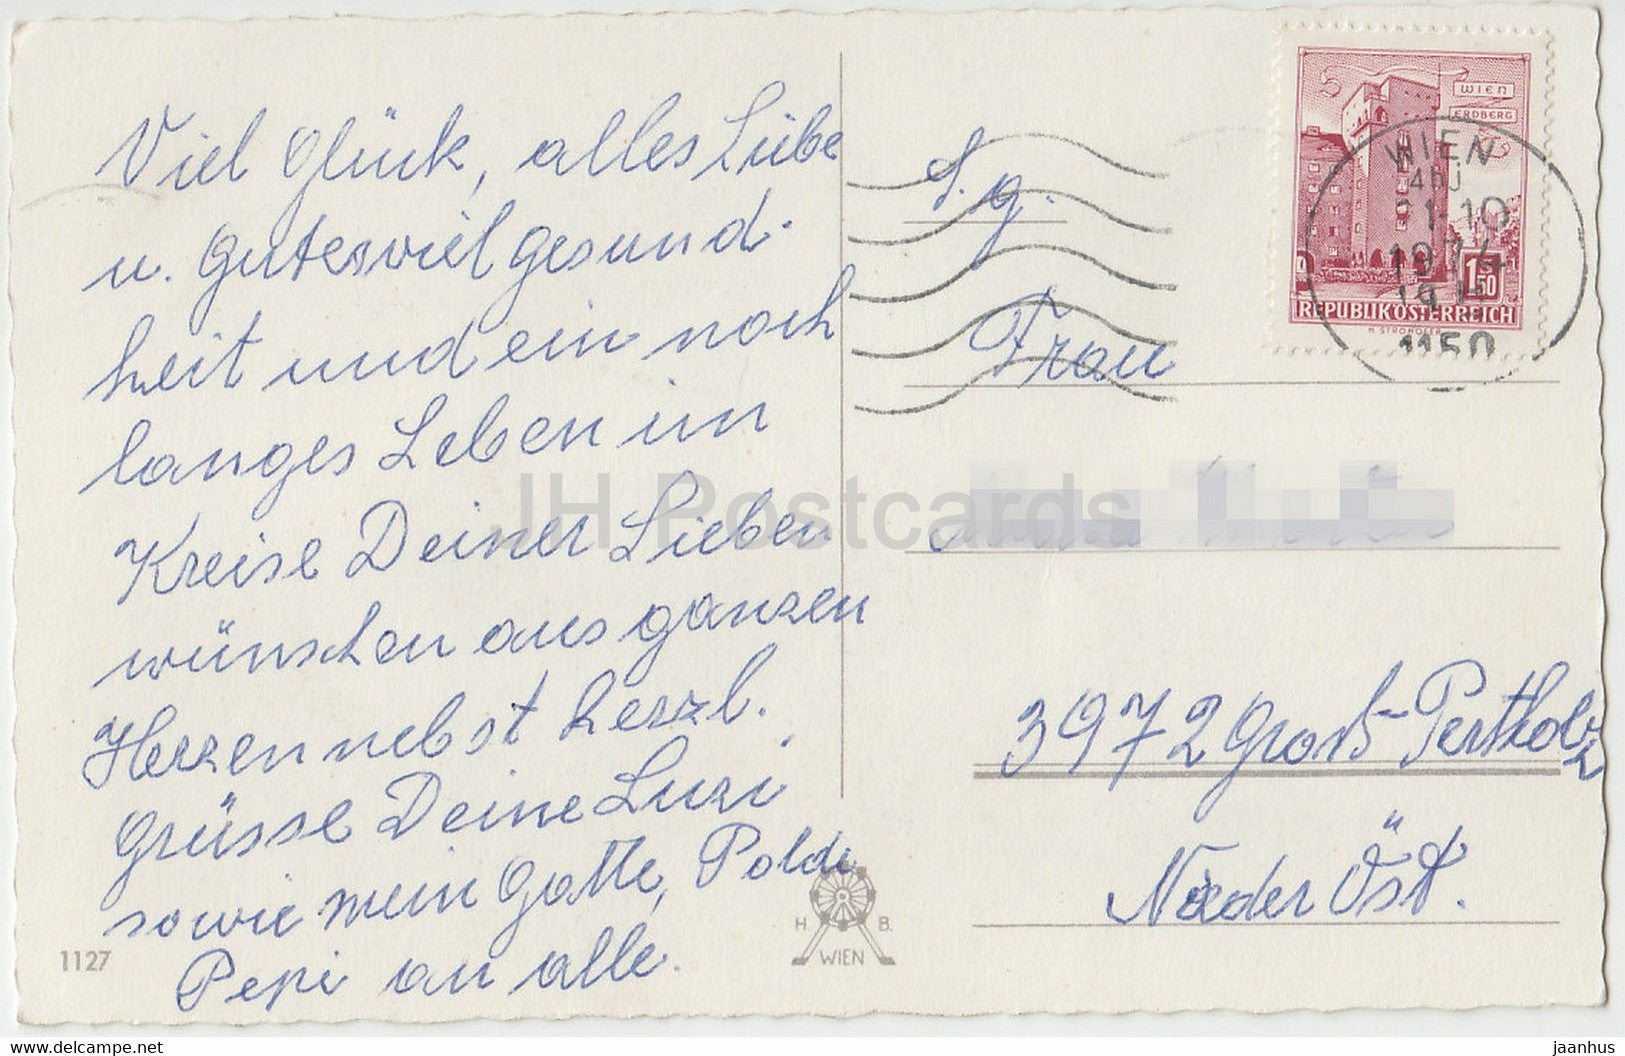 Viel Glück, alles Liebe
u. Gutes viel gesund-
heit und ein noch
langes Leben im
Kreise Deiner Lieben
wünschen aus ganzen
Herzen nebst herzl.
Grüsse Deine Luzi
sowie mein Gatte, Poldi
Pepi an alle.
1127
H. B.
WIEN
S. g.
Frau
3972 Groß-Pertholz
Nieder Öst.
WIEN
ERDBERG
1.50
S
REPUBLIK ÖSTERREICH
H. STROHOFER
WIEN
21-10
1974
1150
JH Postcards
delcampe.net
jaanhus